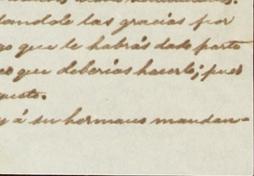 dandole las gracias por
go que le habrás dado parte
que deberias hacerlo; pues
gusto.
y á su hermano mandan-